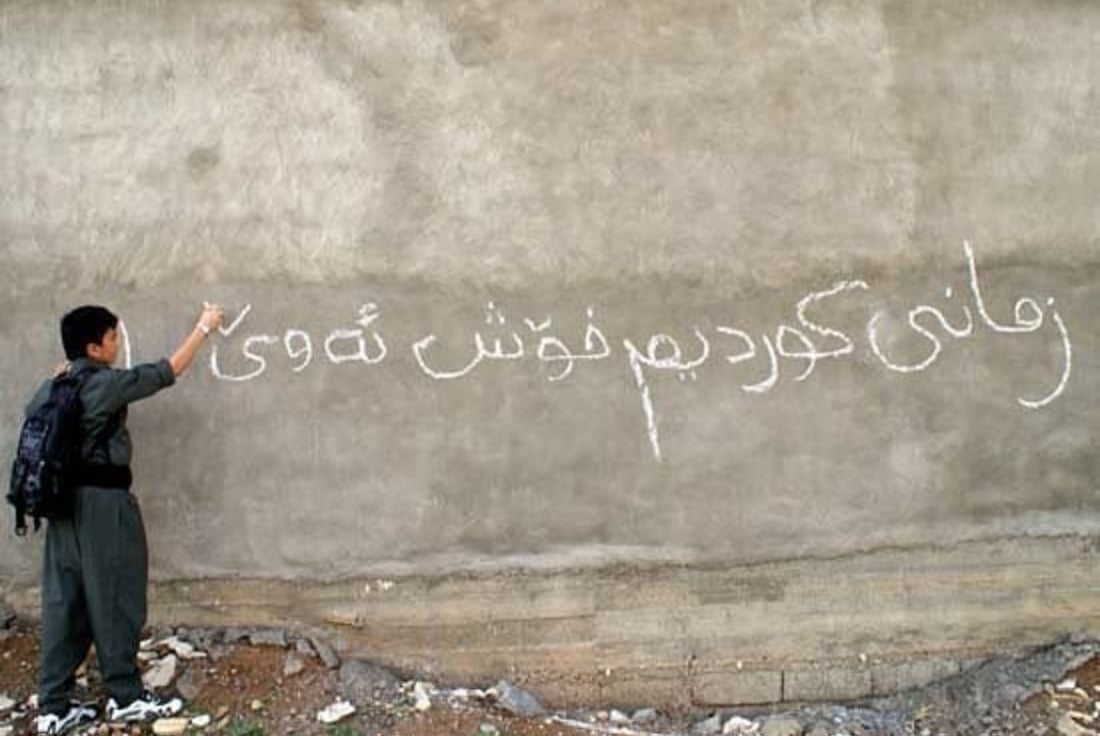 زمانی کوردیم خۆش ئەوێ ا